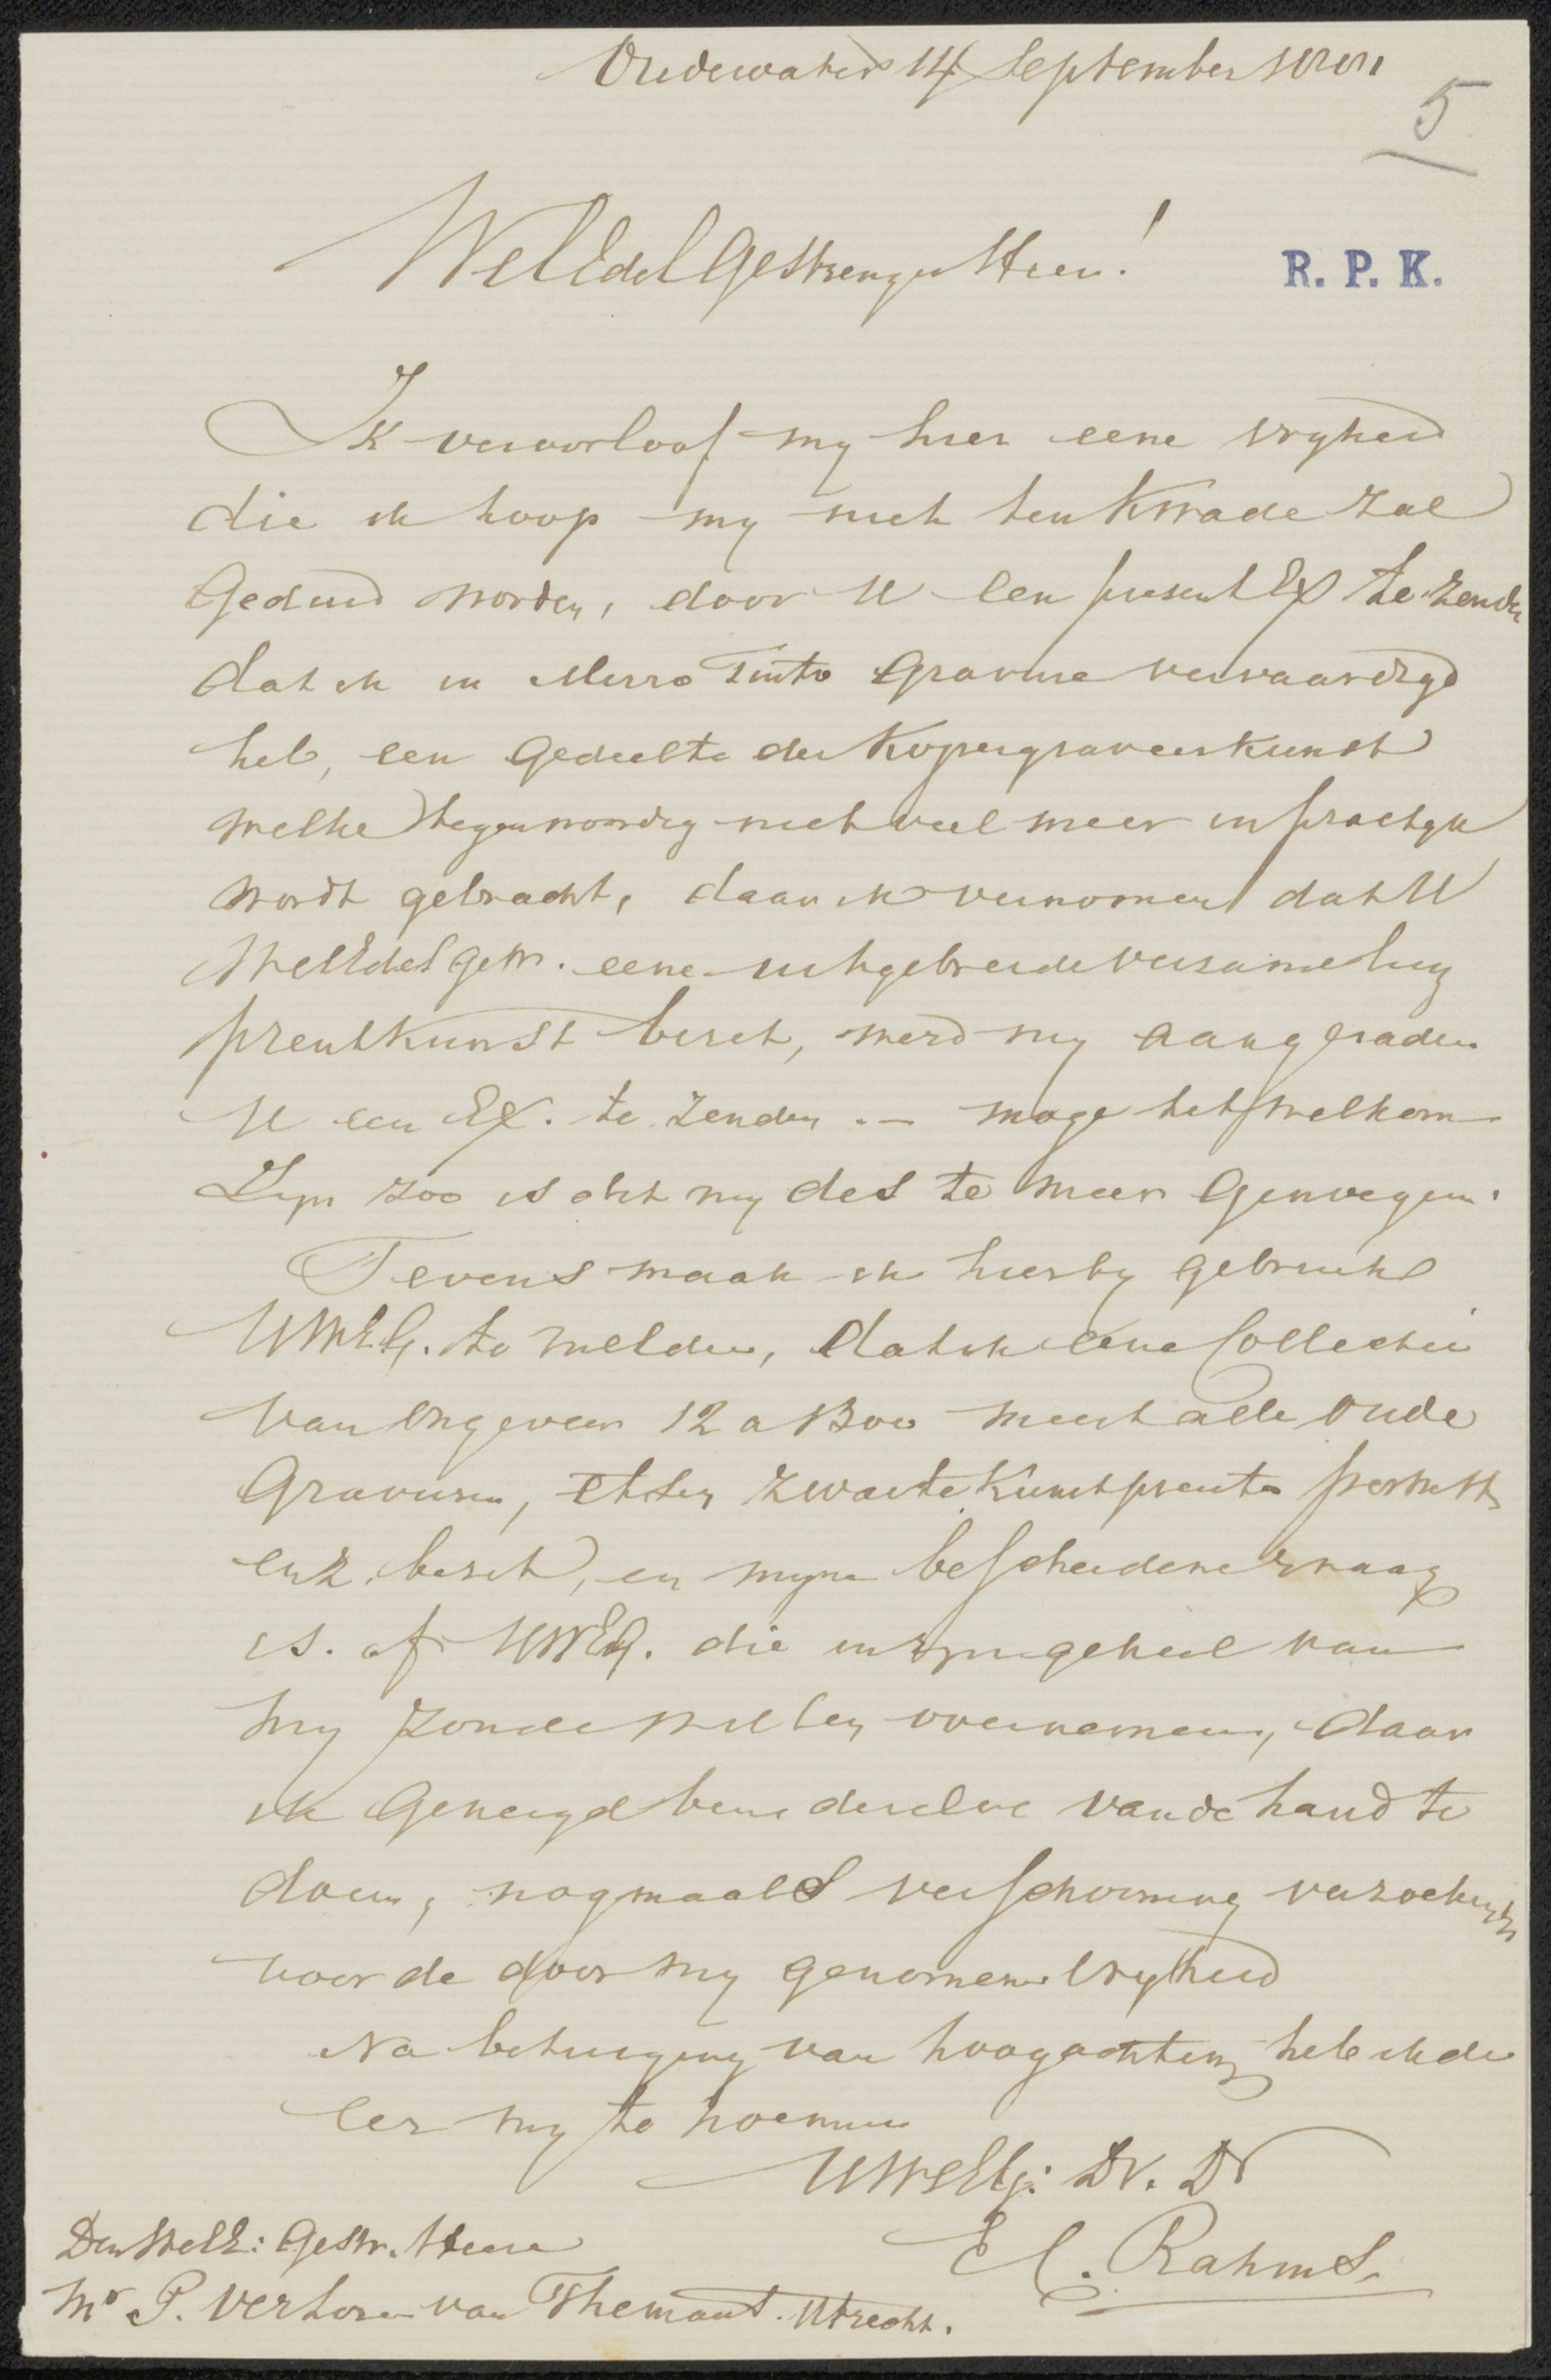 Oudewater 14 September
5
WelEdelGestrenge Heer!
R. P. K.
Ik veroorloof my hier eene vryheid
die ik hoop my niet ten Kwade zal
Geduid worden, door U een present Ex te zenden
dat ik in Mezzo Tinto Gravure vervaardigd
heb, een Gedeelte der Kopergraveerkunst
welke tegenwoordig niet veel meer in practyk
wordt gebracht, daar ik vernomen dat U
WelEdelGestr. eene uitgebreide verzameling
prentkunst bezit, werd my aangeraden
U een Ex. te zenden .— moge het welkom
Zyn zoo is dit my des te meer Genoegen.
Tevens maak ik hierby gebruik
UWEG. te melden, dat ik eene Collectie
van ongeveer 12 a 1300 meest alle oude
Gravuren, etsen zwartekunstprenten portrett
enz. bezit, en myne bescheidene vraag
is. of UWEG. die in zyn geheel van
my zoude willen overnemen, daar
ik Geneigd ben dezelve van de hand te
doen, nogmaals verschooning verzoekende
voor de door my genomen vryheid
Na betuiging van hoogachting heb ik de
eer my te noemen
UWEG: Dv. Dr
E C. Rahms.
Den WelE: Gestr. Heere
Mr P. Verloren van Themaat. Utrecht.